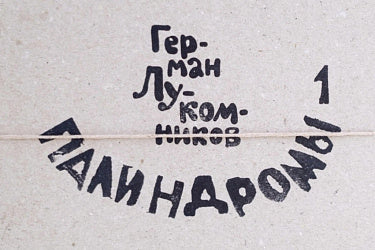 Гер-
ман
Лу-
ком-
ников
1
ПАЛИНДРОМЫ